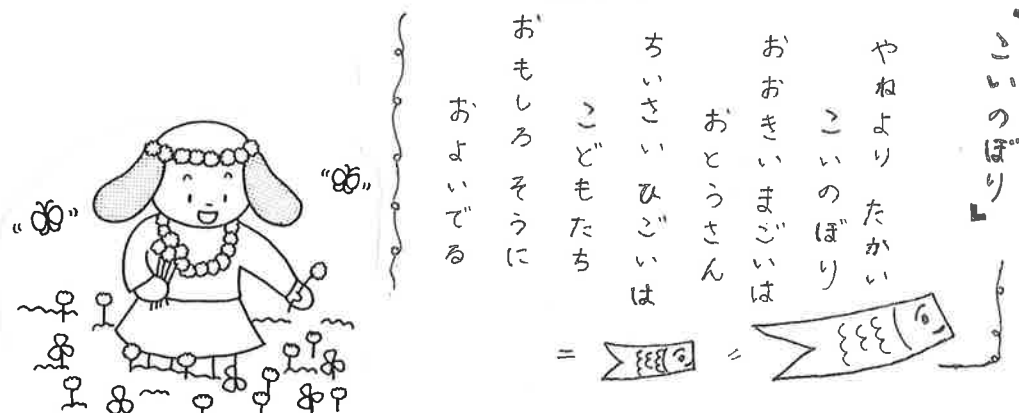 『こいのぼり』
やねより たかい
こいのぼり
おおきいまごいは
おとうさん
ちいさいひごいは
こどもたち
おもしろそうに
およいでる